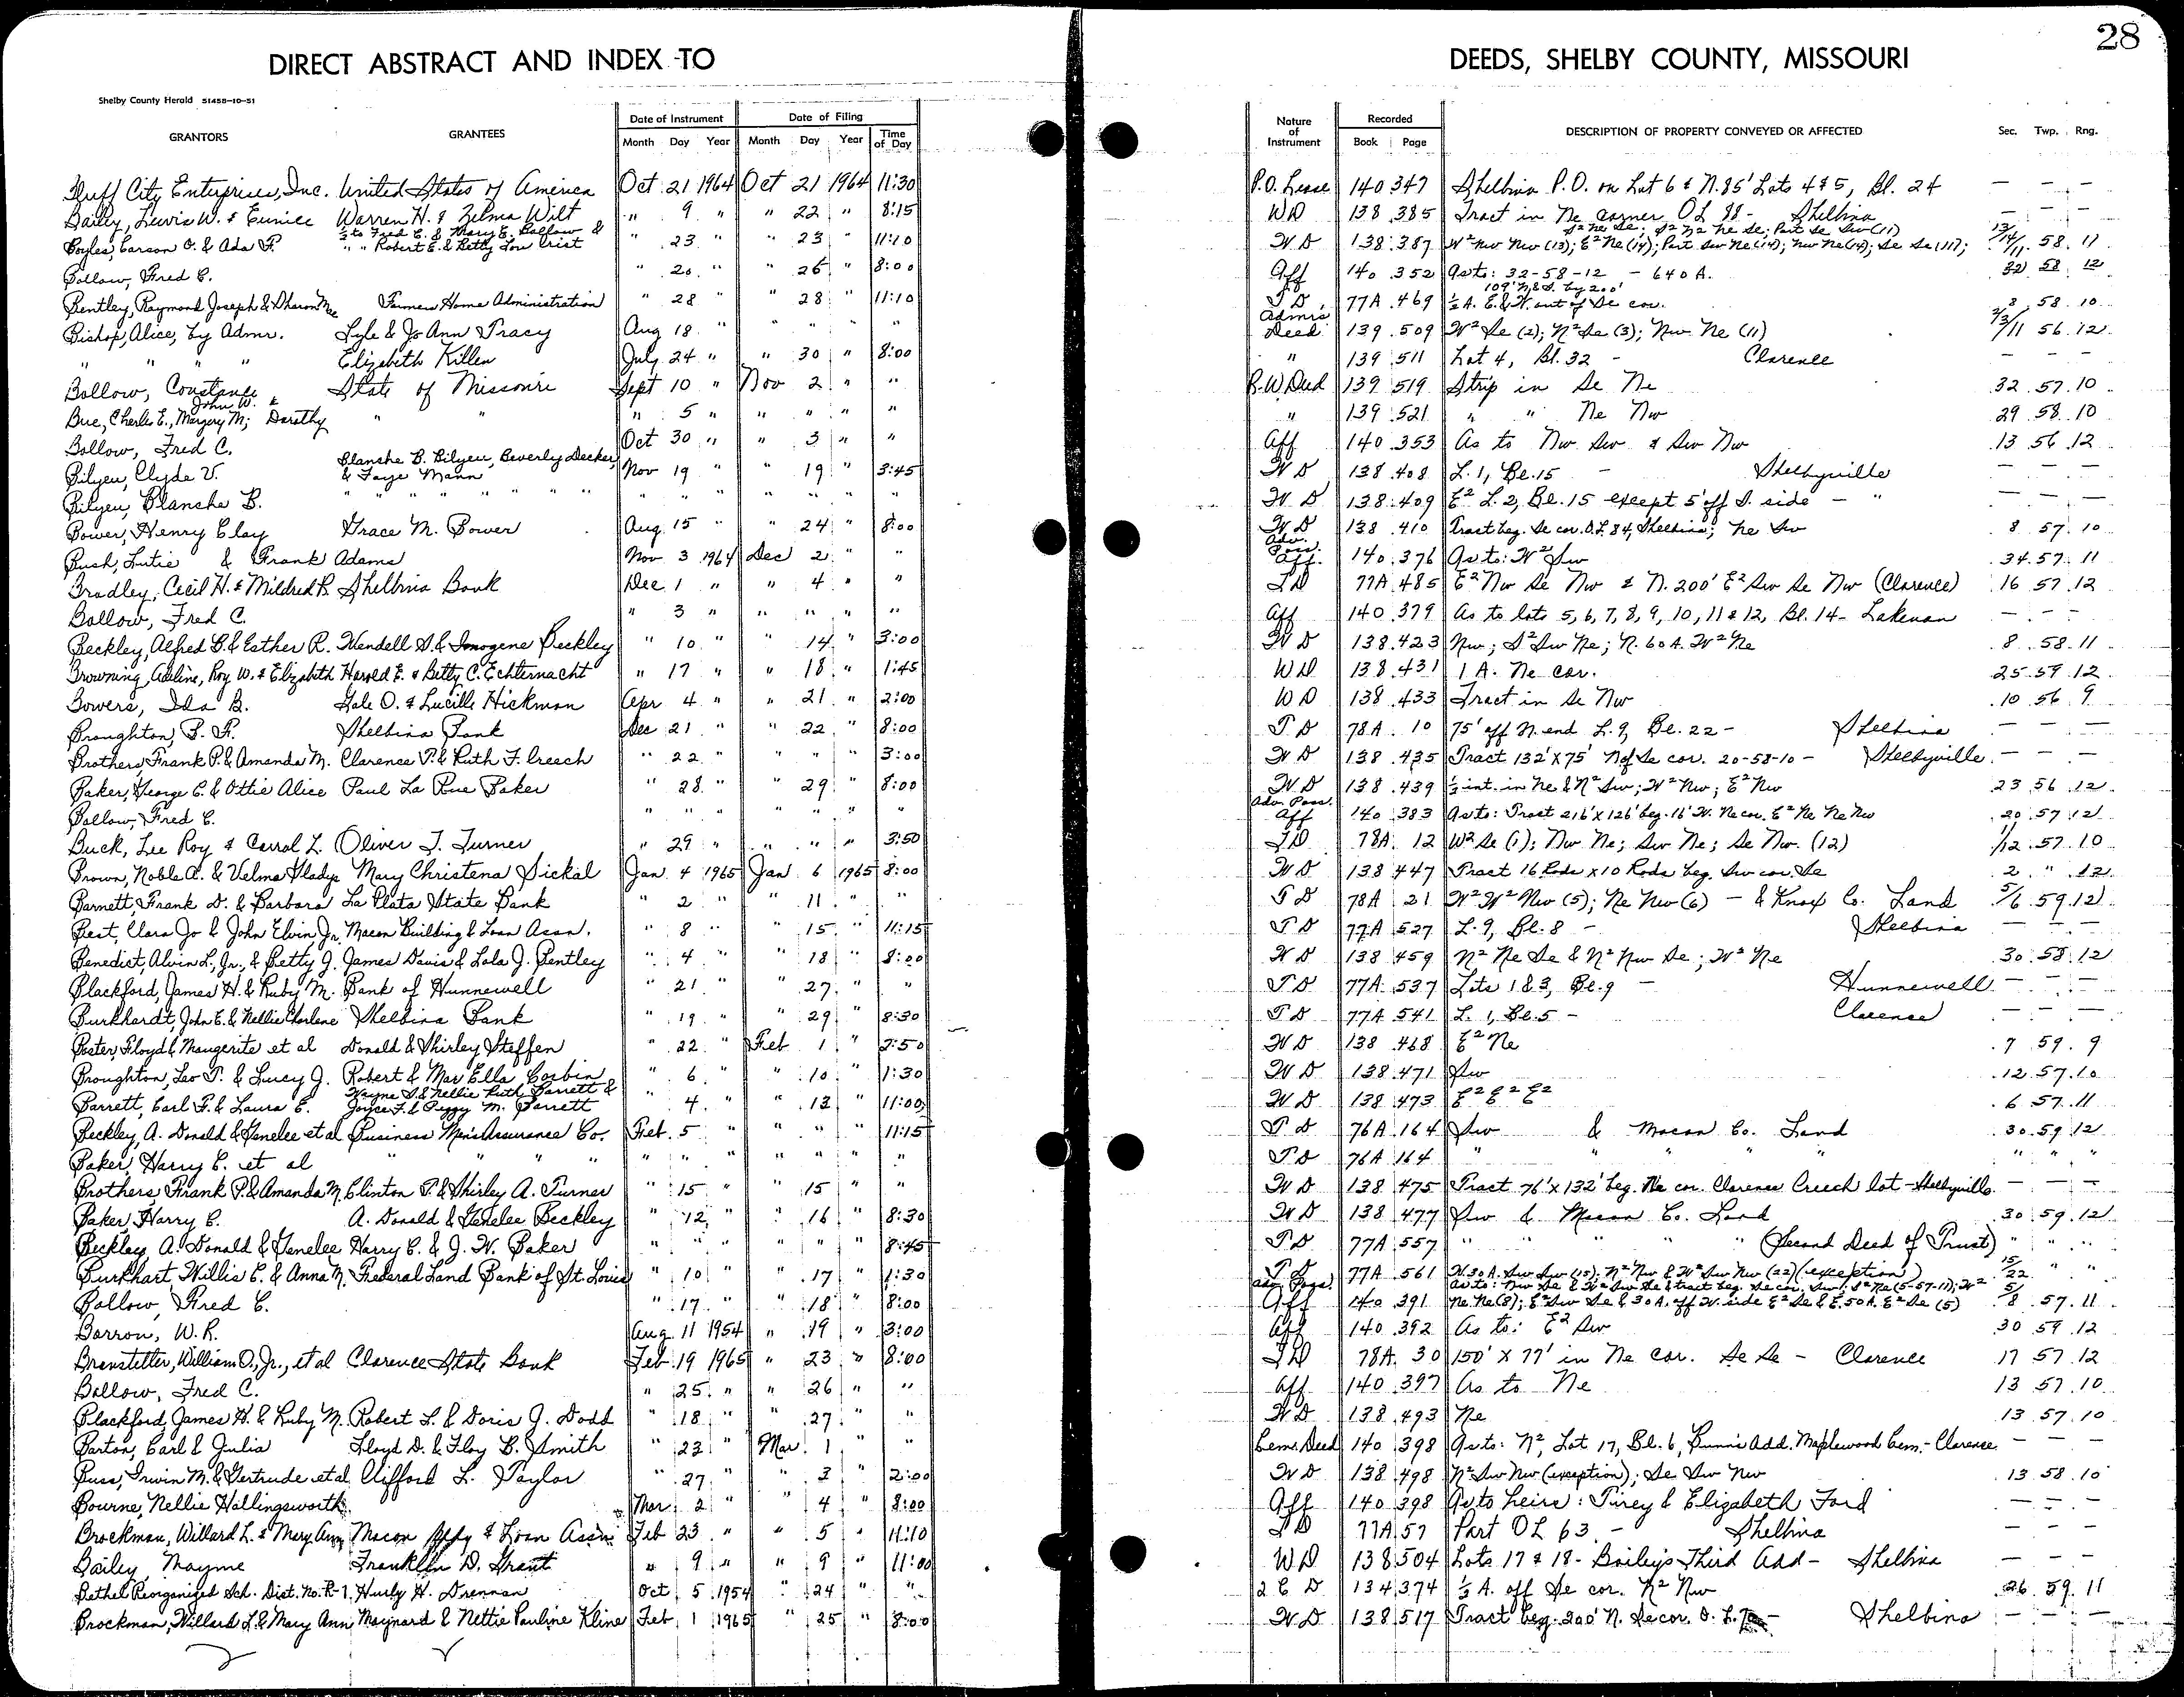 28
DIRECT ABSTRACT AND INDEX TO DEEDS, SHELBY COUNTY, MISSOURI
Shelby County Herald 51458-10-51
GRANTORS GRANTEES Date of Instrument Date of Filing Nature of Instrument Recorded DESCRIPTION OF PROPERTY CONVEYED OR AFFECTED Sec. Twp. Rng.
Month Day Year Month Day Year Time of Day Book Page
Huff City Enterprises, Inc. United States of America Oct 21 1964 Oct 21 1964 11:30 P.O. Lease 140 347 Shelbina P.O. on Lot 6 & N. 85' Lots 4 & 5, Bl. 24 — — —
Baily, Lewis W. & Eunice Warren H. & Zelma Wilt " 9 " " 22 " 8:15 WD 138 385 Tract in Ne corner OL 88 - Shelbina — — —
Boyles, Carson O. & Ada F. ½ to Fred C. & Mary E. Bollow & " " Robert E. & Betty Lou Crist " 23 " " 23 " 11:10 WD 138 387 W² Nw Nw (13); E² Ne (14); Part Sw Ne (14); Nw Ne (14); Se Se (11); S² Ne Se; S² N² Ne Se; Part Se Sw (11) 13/14/11 58 11
Bollow, Fred C. " 20 " " 26 " 8:00 Aff 140 352 As to: 32-58-12 - 640 A. 32 58 12
Bentley, Raymond Joseph & Sharon Mae Farmers Home Administration " 28 " " 28 " 11:10 TD 77A 469 ½ A. E. & W. out of Se cor. 109' N. & S. by 200' 8 58 10
Bishop, Alice, by Admr. Lyle & Jo Ann Tracy Aug 18 " " " " " Admrs Deed 139 509 W² Se (2); N² Se (3); Nw Ne (11) 2/3/11 56 12
" " " Elizabeth Killen July 24 " " 30 " 8:00 " 139 511 Lot 4, Bl. 32 - Clarence — — —
Bollow, Constance State of Missouri Sept 10 " Nov 2 " " R.W. Deed 139 519 Strip in Se Ne 32 57 10
Bue, Charles E., Margery M; John W. & Dorothy " " " 5 " " " " " " 139 521 " " Ne Nw 29 58 10
Bollow, Fred C. Oct 30 " " 3 " " Aff 140 353 As to Nw Sw & Sw Nw 13 56 12
Bilyeu, Clyde V. Blanche B. Bilyeu, Beverly Decker, & Faye Mann Nov 19 " " 19 " 3:45 WD 138 408 L. 1, Bl. 15 - Shelbyville — — —
Bilyeu, Blanche B. " " " " " " " " " " " " " WD 138 409 E² L. 2, Bl. 15 except 5' off S. side - " — — —
Bower, Henry Clay Grace M. Bower Aug 15 " " 24 " 8:00 WD 138 410 Tract beg. Se cor. O.L. 84, Shelbina; Ne Sw 8 57 10
Bush, Lutie & Frank Adams Nov 3 1964 Dec 2 " " Adv. Poss. Aff. 140 376 As to: W² Sw 34 57 11
Bradley, Cecil H. & Mildred R. Shelbina Bank Dec 1 " " 4 " " TD 77A 485 E² Nw Se Nw & N. 200' E² Sw Se Nw (Clarence) 16 57 12
Bollow, Fred C. " 3 " " " " " Aff 140 379 As to lots 5, 6, 7, 8, 9, 10, 11 & 12, Bl. 14 - Lakenan — — —
Beckley, Alfred B. & Esther R. Wendell S. & Imogene Beckley " 10 " " 14 " 3:00 WD 138 423 Nw; S² Sw Ne; N. 60 A. W² Ne 8 58 11
Browning, Adeline, Roy W. & Elizabeth Harold E. & Betty C. Echternacht " 17 " " 18 " 1:45 WD 138 431 1 A. Ne cor. 25 59 12
Bowers, Ida B. Gale O. & Lucille Hickman Apr 4 " " 21 " 2:00 WD 138 433 Tract in Se Nw 10 56 9
Broughton, B. F. Shelbina Bank Dec 21 " " 22 " 8:00 TD 78A 10 75' off N. end L. 9, Bl. 22 - Shelbina — — —
Brothers, Frank P. & Amanda M. Clarence V. & Ruth F. Creech " 22 " " " " 3:00 WD 138 435 Tract 132' X 75' N of Se cor. 20-58-10 - Shelbyville — — —
Baker, George C. & Ottie Alice Paul La Rue Baker " 28 " " 29 " 8:00 WD 138 439 ½ int. in Ne & N² Sw; W² Nw; E² Nw 23 56 12
Bollow, Fred C. " " " " " " " Adv. Poss. Aff 140 383 As to: Tract 216' X 126' beg. 16' W. Ne cor. E² Ne Ne Nw 20 57 12
Buck, Lee Roy & Carrol L. Oliver T. Turner " 29 " " " " 3:50 TD 78A 12 W² Se (1); Nw Ne; Sw Ne; Se Nw (12) 1/12 57 10
Brown, Noble A. & Velma Gladys Mary Christena Sickal Jan 4 1965 Jan 6 1965 8:00 WD 138 447 Tract 16 Rods x 10 Rods beg. Sw cor. Se 2 " 12
Barnett, Frank D. & Barbara La Plata State Bank " 2 " " 11 " " TD 78A 21 W² W² Nw (5); Ne Nw (6) - & Knox Co. Land 5/6 59 12
Best, Clara Jo & John Elvin Jr. Macon Building & Loan Assn. " 8 " " 15 " 11:15 TD 77A 527 L. 9, Bl. 8 - Shelbina — — —
Benedict, Alvin L., Jr., & Betty J. James Davis & Lola J. Bentley " 4 " " 18 " 8:00 WD 138 459 N² Ne Se & N² Nw Se; W² Ne 30 58 12
Blackford, James H. & Ruby M. Bank of Hunnewell " 21 " " 27 " " TD 77A 537 Lots 1 & 3, Bl. 9 - Hunnewell — — —
Burkhardt, John E. & Nellie Charlene Shelbina Bank " 19 " " 29 " 8:30 TD 77A 541 L. 1, Bl. 5 - Clarence — — —
Bester, Floyd & Maugerite et al Donald & Shirley Steffen " 22 " Feb 1 " 2:50 WD 138 468 E² Ne 7 59 9
Broughton, Leo T. & Lucy J. Robert & Mae Ella Corbin " 6 " " 10 " 1:30 WD 138 471 Sw 12 57 10
Barrett, Carl F. & Laura E. Wayne S. & Nellie Ruth Barrett & Joyce F. & Peggy M. Barrett " 4 " " 12 " 11:00 WD 138 473 E² E² E² 6 57 11
Beckley, A. Donald & Genelee et al Business Men's Assurance Co. Feb. 5 " " " " 11:15 TD 76A 164 Sw & Macon Co. Land 30 59 12
Baker, Harry C. et al " " " " " " " " " " TD 76A 164 " " " " " " "
Brothers, Frank P. & Amanda M. Clinton P. & Shirley A. Turner " 15 " " 15 " " WD 138 475 Tract 76' X 132' beg. Ne cor. Clarence Creech lot - Shelbyville — — —
Baker, Harry C. A. Donald & Genelee Beckley " 12 " " 16 " 8:30 WD 138 477 Sw & Macon Co. Land 30 59 12
Beckley, A. Donald & Genelee Harry C. & J. W. Baker " " " " " " 8:45 TD 77A 557 " " " " (Second Deed of Trust) " " "
Burkhart, Willis C. & Anna M. Federal Land Bank of St. Louis " 10 " " 17 " 1:30 TD 77A 561 W. 30 A. Sw Sw (15); N² Nw & W² Sw Nw (22) (exception) 15/22 " "
Bollow, Fred C. " 17 " " 18 " 8:00 Adv. Poss. Aff 140 391 Ne Ne (8); E² Sw Se & 30 A. off W. side E² Se & E. 50 A. E² Se (5) 5/8 57 11
Barron, W. R. Aug 11 1954 " 19 " 3:00 Aff 140 392 As to: E² Sw 30 59 12
Branstetter, William O., Jr., et al Clarence State Bank Feb 19 1965 " 23 " 8:00 TD 78A 30 150' X 77' in Ne cor. Se Se - Clarence 17 57 12
Bollow, Fred C. " 25 " " 26 " " Aff 140 397 As to Ne 13 57 10
Blackford, James H. & Ruby M. Robert L. & Doris J. Dodd " 18 " " 27 " " WD 138 493 Ne 13 57 10
Barton, Carl & Julia Floyd D. & Floy B. Smith " 23 " Mar. 1 " " Cem. Deed 140 398 As to: N², Lot 17, Bl. 6, Bunn's Add. Maplewood Cem. - Clarence — — —
Buss, Irwin M. & Gertrude et al Clifford L. Taylor " 27 " " 3 " 2:00 WD 138 498 N² Sw Nw (exception); Se Sw Nw 13 58 10
Bourne, Nellie Hollingsworth Mar. 2 " " 4 " 8:00 Aff 140 398 As to heirs: Tirey & Elizabeth Ford — — —
Brockman, Willard L. & Mary Ann Macon Bldg & Loan Assn Feb 23 " " 5 " 11:10 TD 77A 57 Part OL 63 - Shelbina — — —
Bailey, Mayme Franklin D. Grant " 9 " " 9 " 11:00 WD 138 504 Lots 17 & 18 - Bailey's Third Add - Shelbina — — —
Bethel Reorganized Sch. Dist. No. R-1, Hurly H. Drennan Oct 5 1954 " 24 " " 2 C D 134 374 ½ A. off Se cor. N² Nw 26 59 11
Brockman, Willard L. & Mary Ann, Maynard & Nettie Pauline Kline Feb 1 1965 " 25 " 8:00 WD 138 517 Tract beg. 200' N. Se cor. O. L. - Shelbina — — —